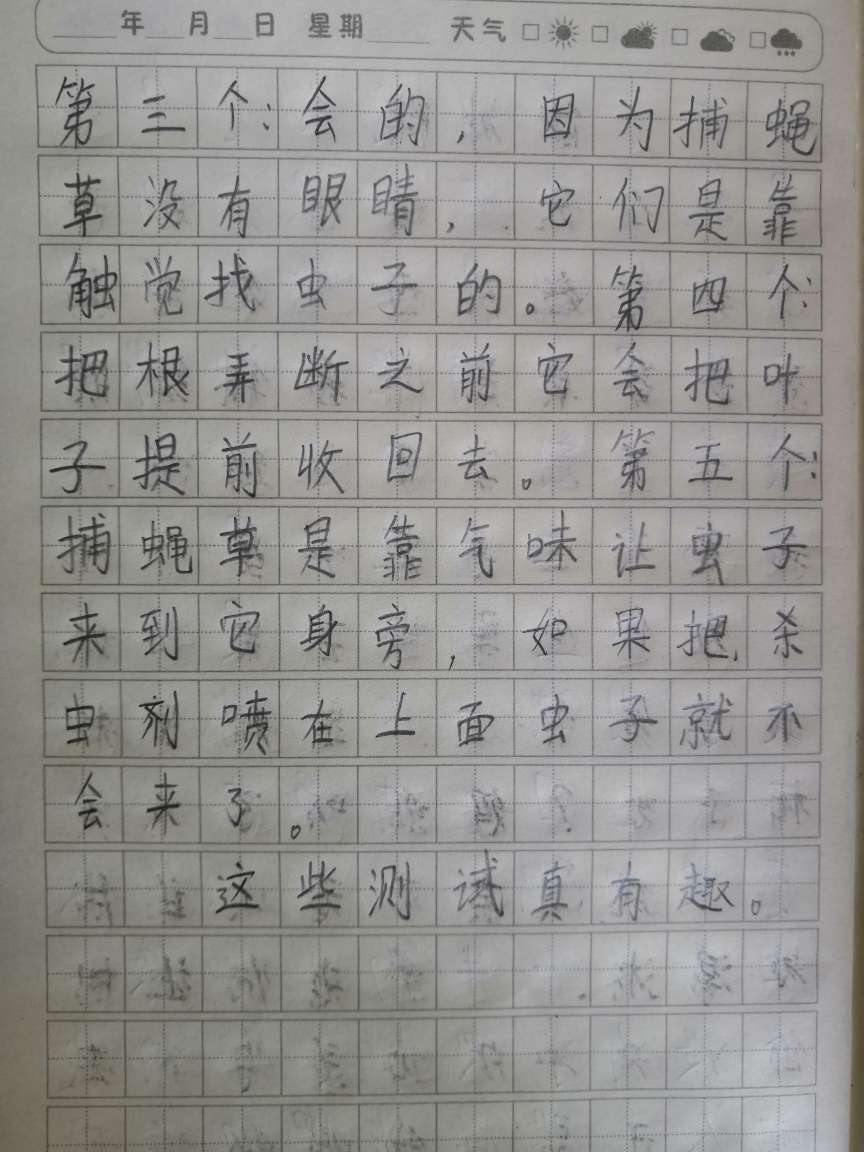 年 月 日 星期 天气
第三个:会的,因为捕蝇
草没有眼睛,它们是靠
触觉找虫子的。第四个:
把根弄断之前它会把叶
子提前收回去。第五个:
捕蝇草是靠气味让虫子
来到它身旁,如果把杀
虫剂喷在上面虫子就不
会来了。
这些测试真有趣。